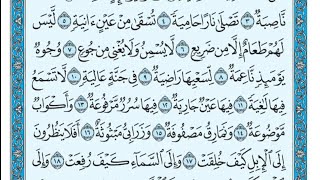 نَّاصِبَةٌ ٣ تَصْلَىٰ نَارًا حَامِيَةً ٤ تُسْقَىٰ مِنْ عَيْنٍ ءَانِيَةٍ ٥ لَّيْسَ
لَهُمْ طَعَامٌ إِلَّا مِن ضَرِيعٍ ٦ لَّا يُسْمِنُ وَلَا يُغْنِي مِن جُوعٍ ٧ وُجُوهٌ
يَوْمَئِذٍ نَّاعِمَةٌ ٨ لِّسَعْيِهَا رَاضِيَةٌ ٩ فِي جَنَّةٍ عَالِيَةٍ ١٠ لَّا تَسْمَعُ
فِيهَا لَٰغِيَةً ١١ فِيهَا عَيْنٌ جَارِيَةٌ ١٢ فِيهَا سُرُرٌ مَّرْفُوعَةٌ ١٣ وَأَكْوَابٌ
مَّوْضُوعَةٌ ١٤ وَنَمَارِقُ مَصْفُوفَةٌ ١٥ وَزَرَابِيُّ مَبْثُوثَةٌ ١٦ أَفَلَا يَنظُرُونَ
إِلَى الْإِبِلِ كَيْفَ خُلِقَتْ ١٧ وَإِلَى السَّمَاءِ كَيْفَ رُفِعَتْ ١٨ وَإِلَى